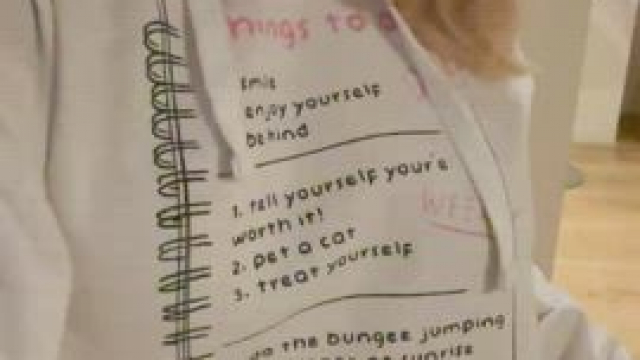 to
smile
enjoy yourself
be kind
1. tell yourself your'e
worth it!
2. pet a cat
3. treat yourself
the bungee jumping
sunrise